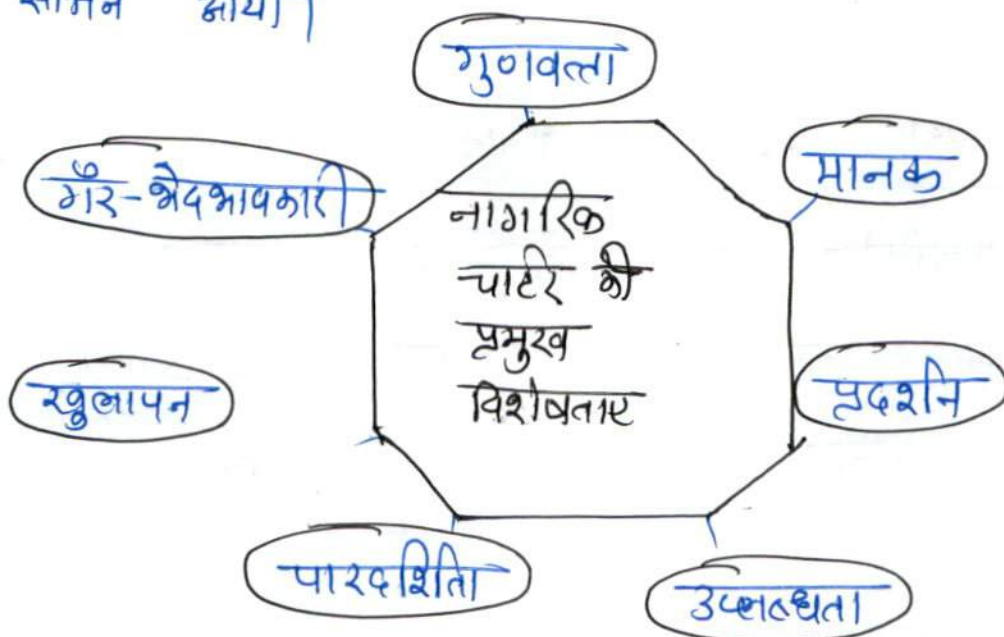 सामने आया।
गुणवत्ता
गैर-भेदभावकारी
मानक
नागरिक
चार्टर की
प्रमुख
विशेषताए
खुलापन
प्रदर्शन
पारदर्शिता
उपलब्धता